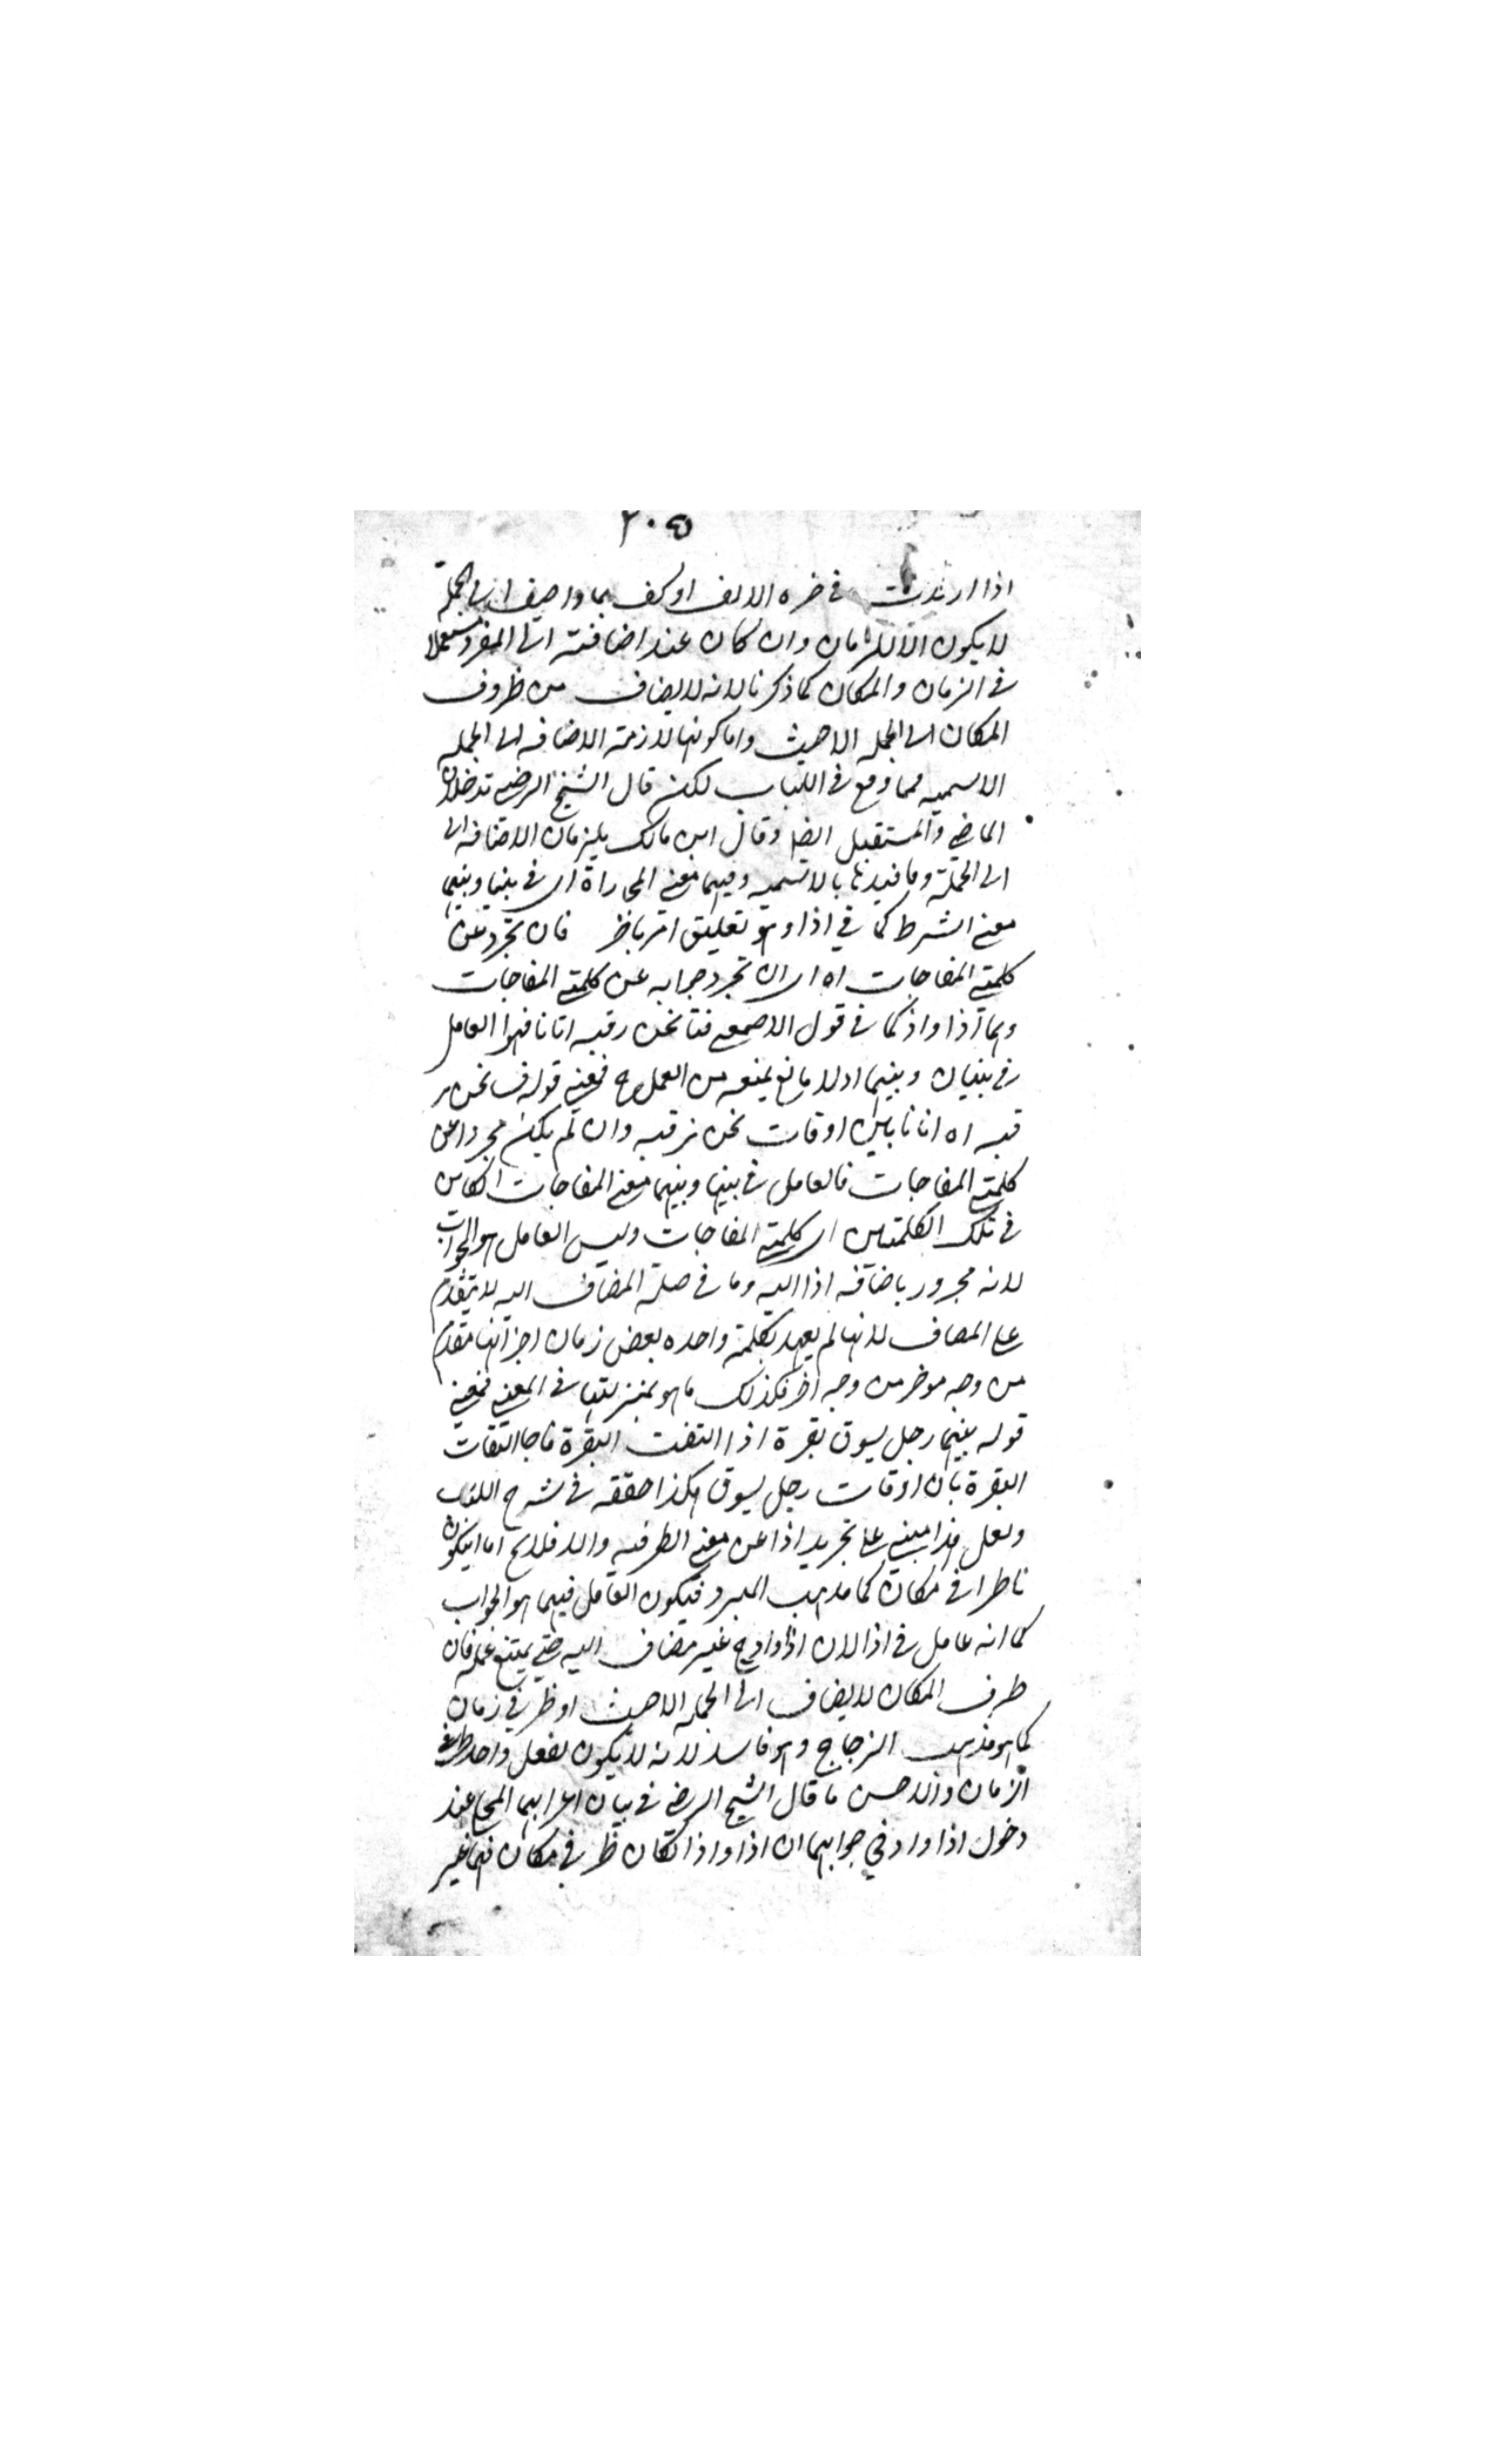 ٢٠٥
اذا ازيدت في اخره الالف او كف بما واضيف الى الجملة
لا يكون الا للزمان وان كان عند اضافته الى المفرد مستعملا
في الزمان والمكان كما ذكرنا لانه لا يضاف من ظروف
المكان الى الجملة الا حيث واما كونها لازمة الاضافه الى الجمله
الاسميه فمما وقع في اللباب لكن قال الشيخ الرضي تدخلان
الماضي والمستقبل ايضا وقال ابن مالك يلزمان الاضافه الى
الى الجملة وما قيدها بالاسميه وفيهما معنى المجازاة اى في بينا وبينما
معنى الشرط كما في اذا وهو تعليق امر باخر فان تجرد عن
كلمتي المفاجات اه اى ان تجرد جوابه عن كلمتي المفاجات
وهما اذا واذ كما في قول الاصمعي فبينا نحن نرقبه اتانا فهو العامل
في بينا وبينما اذ لا مانع يمنعه من العمل ح فمعنى قوله فبينا نحن نر
قبه اه اتانا بين اوقات نحن نرقبه وان لم يكن مجردا عن
كلمتي المفاجات فالعامل في بينا وبينما معنى المفاجات الكاين
في تلك الكلمتين اى كلمتي المفاجات وليس العامل هو الجواب
لانه مجرور باضافة اذا اليه وما في صلة المضاف اليه لا يتقدم
على المضاف لانها لم يعهد كلمة واحده بعض زمان اجزائها مقدم
من وجه موخر من وجه اخر فكذلك ما هو بمنزلتها في المعنى فمعنى
قوله بينما رجل يسوق بقرة اذا التفت البقرة فاجا التفات
البقرة بين اوقات رجل يسوق هكذا حققه في شرح اللباب
ولعل هذا مبني على تجريد اذا عن معنى الظرفيه والا فلا يخ اما ان يكون
ظرفا في مكان كما مذهب المبرد فيكون العامل فيهما هو الجواب
كما انه عامل في اذا لان اذا واذ ح غير مضاف اليه حتى يمتنع عمله فان
ظرف المكان لا يضاف الى الجمله الا حيث او ظرفي زمان
كما هو مذهب الزجاج وهو فاسد لانه لا يكون لفعل واحد ظرفا
الزمان والاحسن ما قال الشيخ الرضي في بيان اعرابهما المحلي عند
دخول اذا واذ في جوابهما ان اذا واذ ان كان ظرفي مكان فهما غير